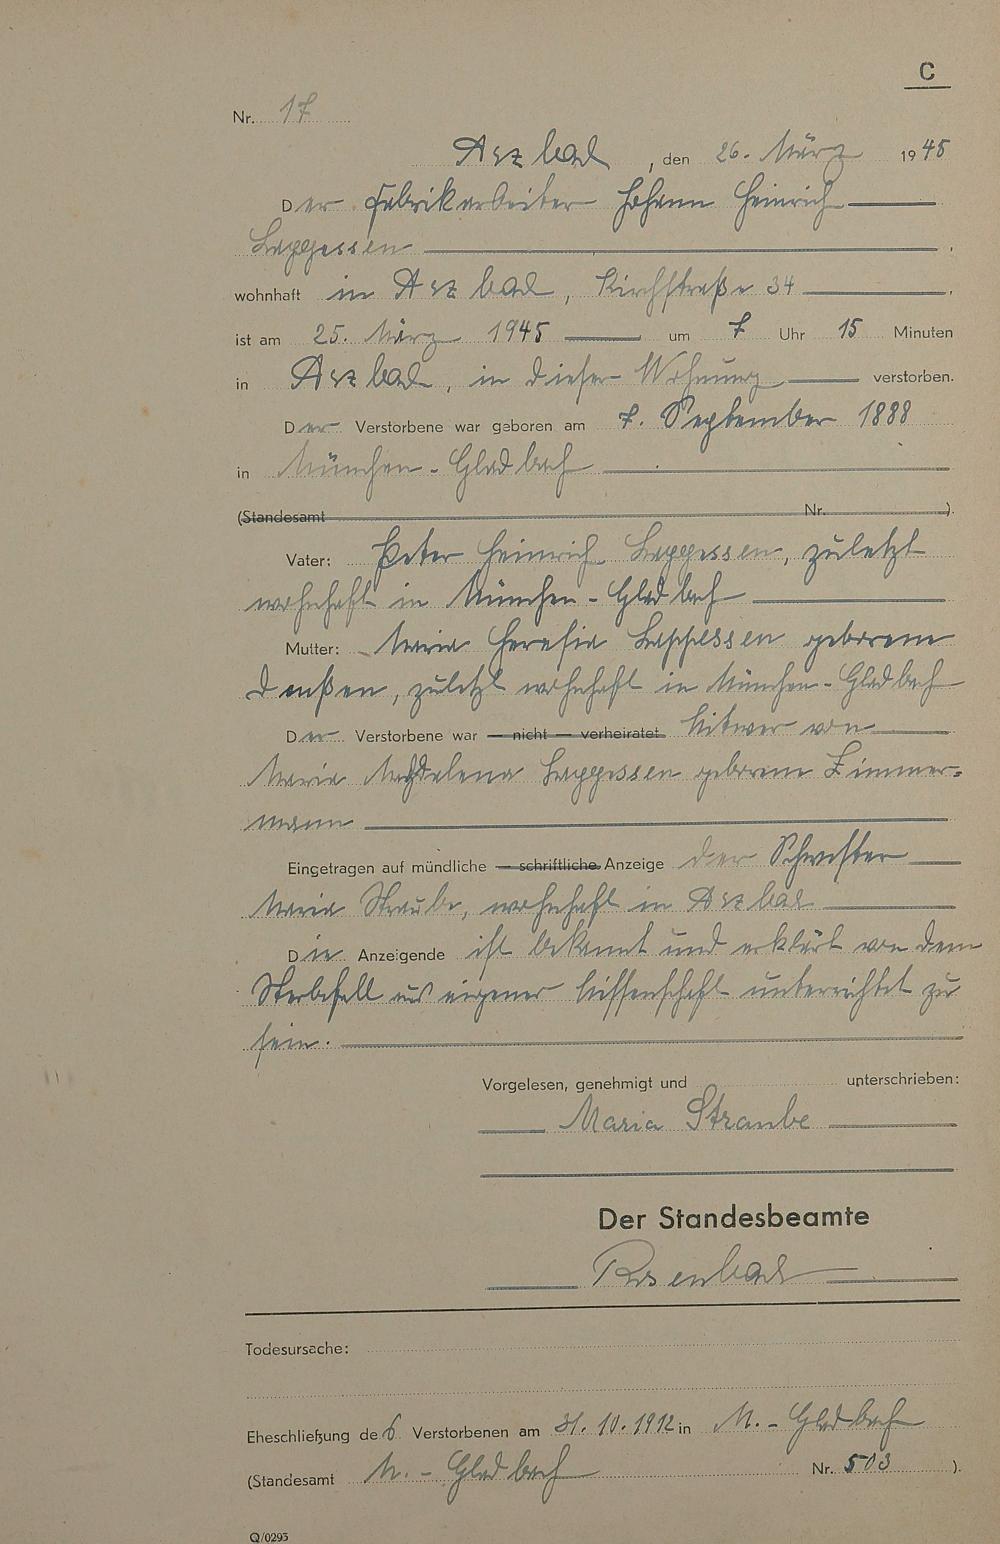 C
Nr. 17
Arzbach, den 26. März 1945
Der Fabrikarbeiter Johann Heinrich
Lappessen
wohnhaft in Arzbach, Kirchstraße 34
ist am 25. März 1945 um 7 Uhr 15 Minuten
in Arzbach, in dieser Wohnung verstorben.
Der Verstorbene war geboren am 7. September 1888
in München-Gladbach
(Standesamt Nr. ).
Vater: Peter Heinrich Lappessen, zuletzt
wohnhaft in München-Gladbach
Mutter: Maria Theresia Lappessen geborene
zuletzt wohnhaft in München-Gladbach
Der Verstorbene war — nicht — verheiratet Witwer von
Maria Magdalena Lappessen geborene Zimmer-
mann
Eingetragen auf mündliche — schriftliche Anzeige der Schwester
Maria Straube, wohnhaft in Arzbach
Die Anzeigende ist bekannt und erklärt von dem
Sterbefall aus eigener Wissenschaft unterrichtet zu
sein.
Vorgelesen, genehmigt und unterschrieben:
Maria Straube
Der Standesbeamte
Rosenbach
Todesursache:
Eheschließung des Verstorbenen am 31.10.1912 in M.-Gladbach
(Standesamt M.-Gladbach Nr. 503 ).
Q/0293